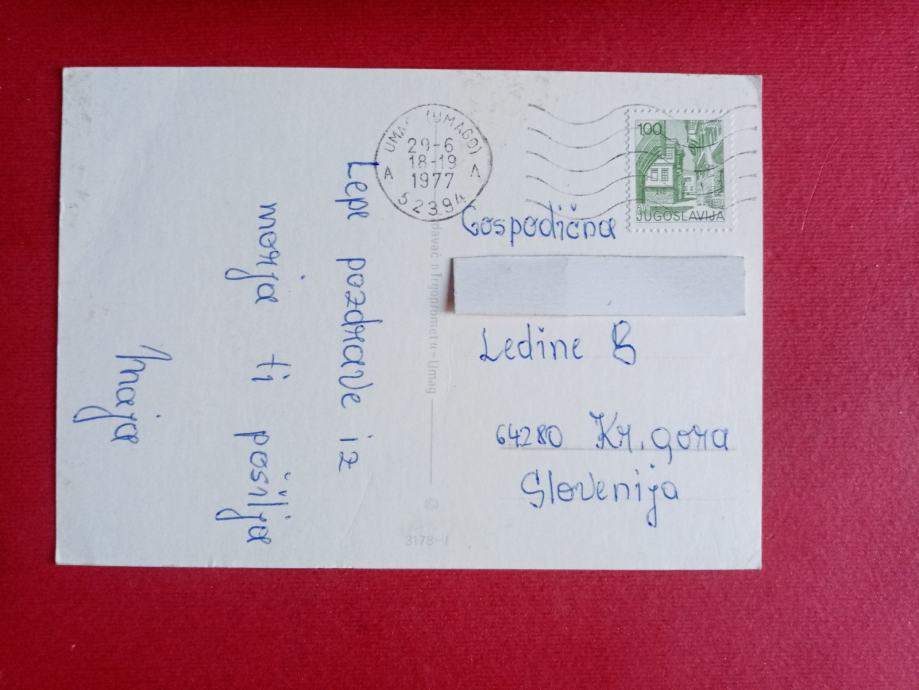 Lepe pozdrave iz
morja ti pošilja
Maja
UMAG (UMAGO)
29-6
18-19
1977
A A
52394
100
JUGOSLAVIJA
Gospodična
Ledine 8
64280 Kr. gora
Slovenija
davač »Trgopromet«-Umag
3178-1